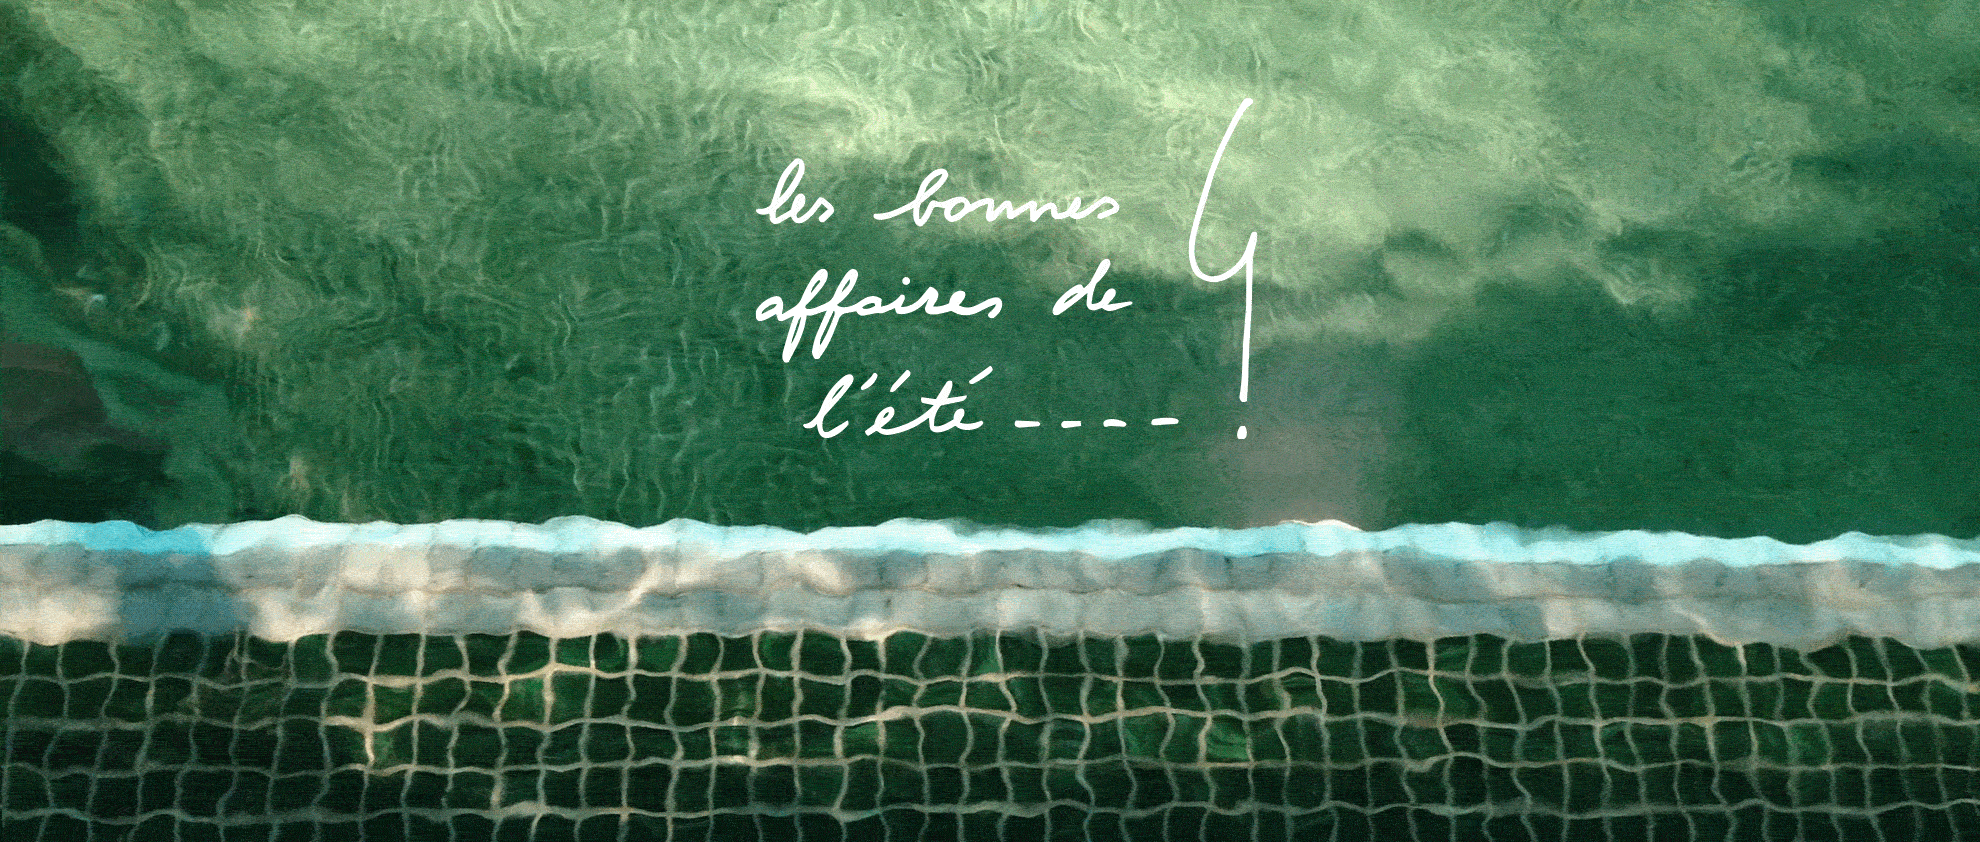 les bonnes
affaires de
l'été ---- !